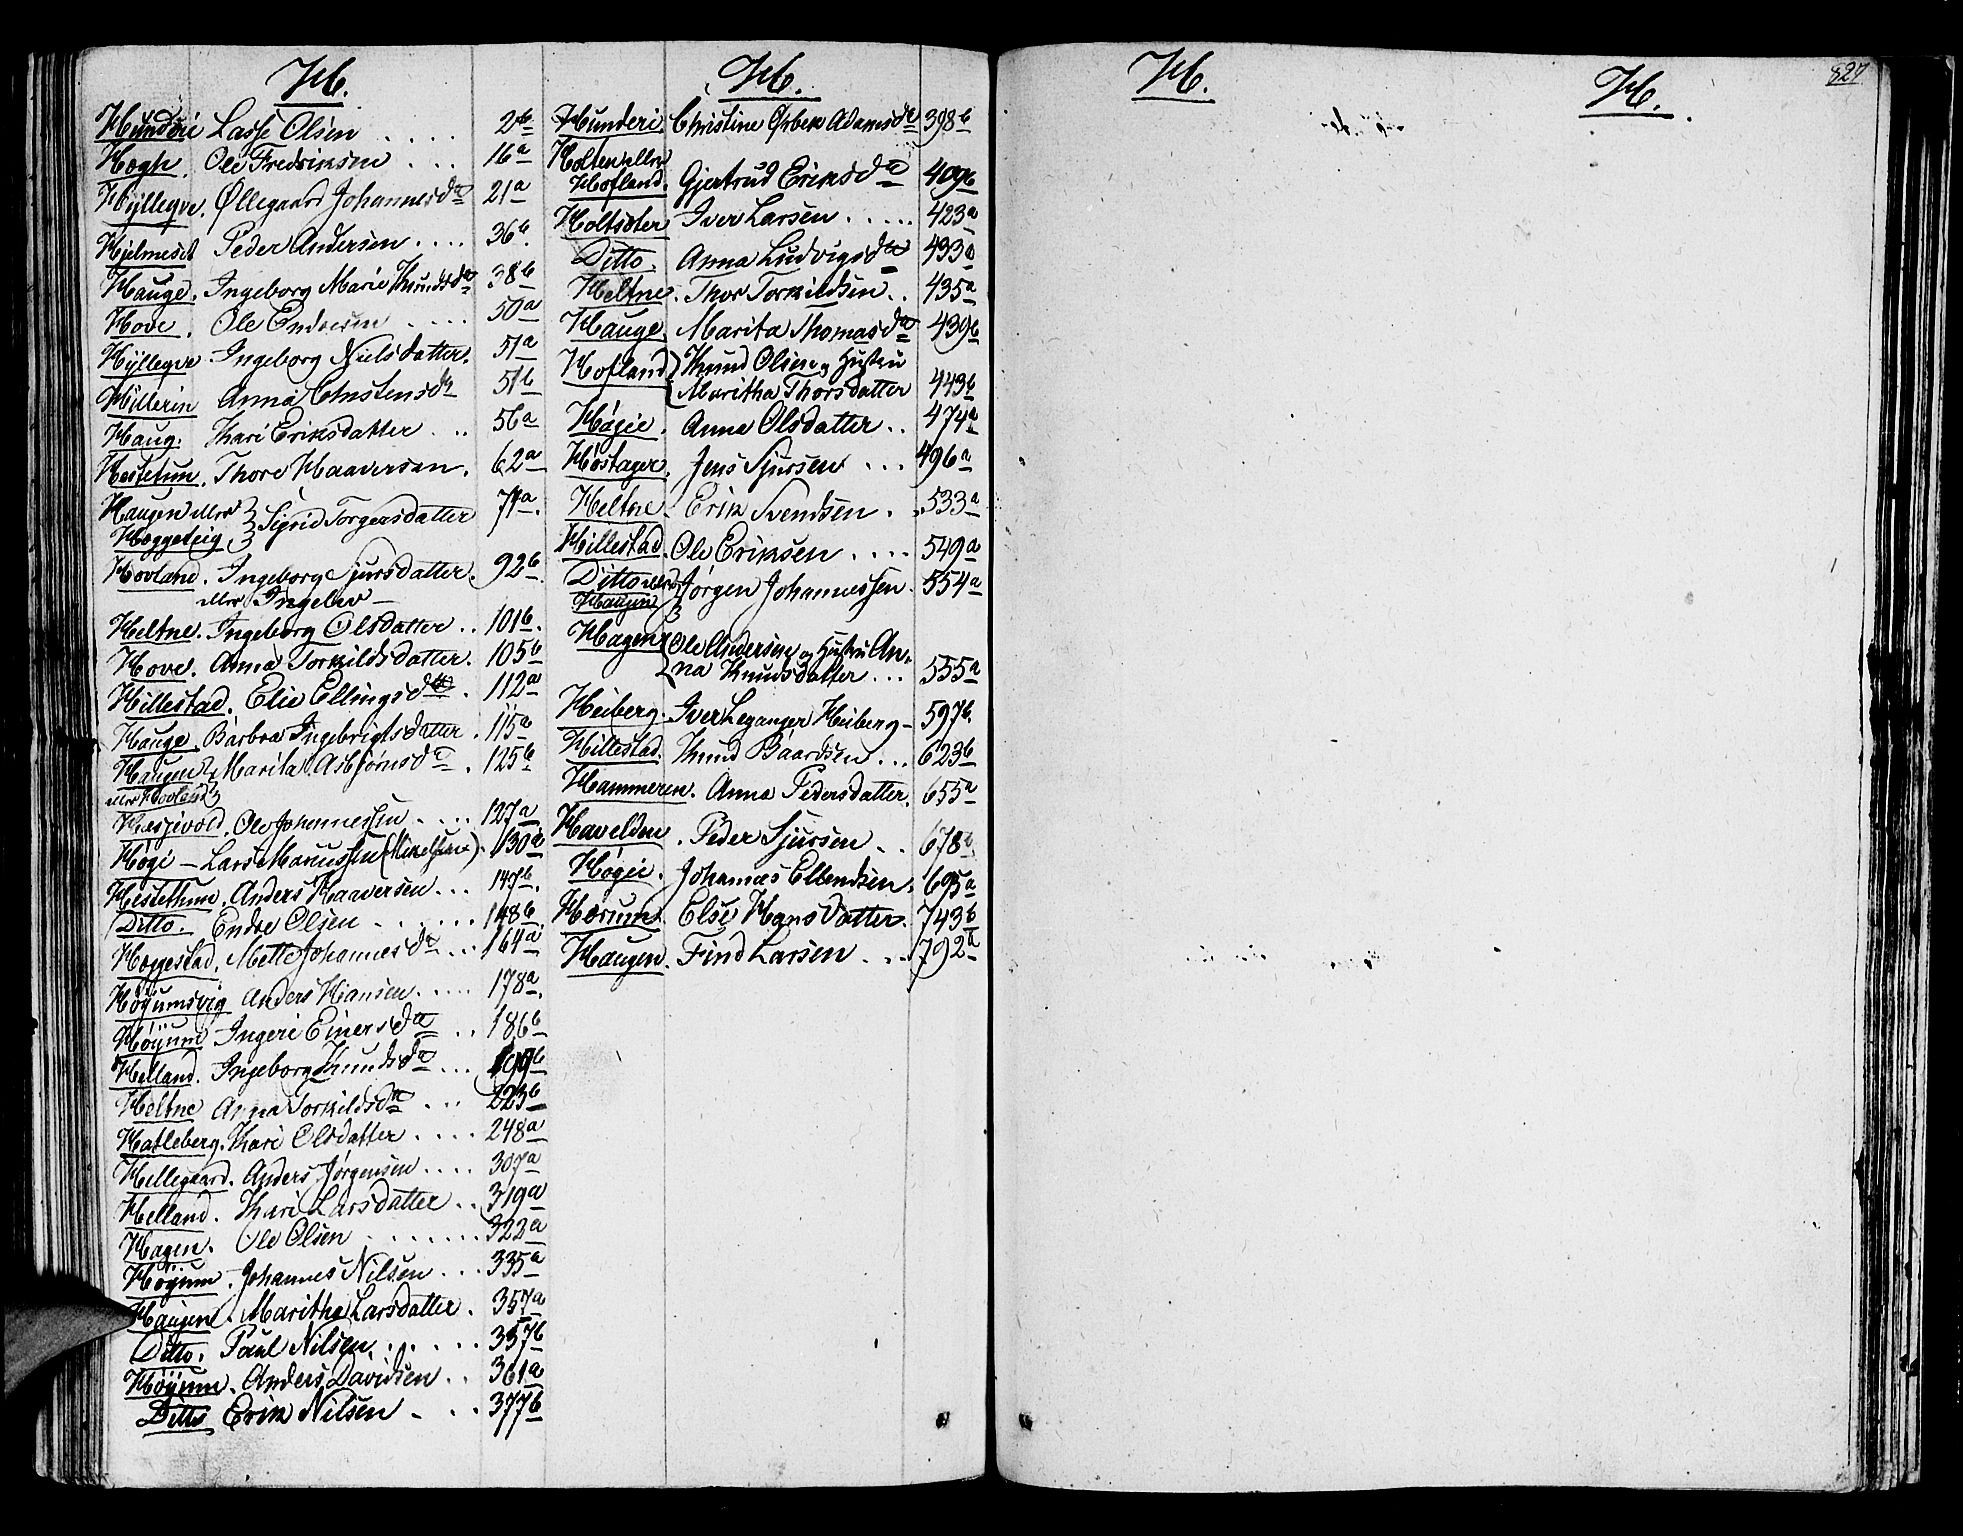 H.
Hunderi Lasse Olsen . . . . 2b
Høgh. Ole Fredriksen . . . 16a
Hyllegve. Øllegaard Johannesda 21a
Hjelmeset Peder Andersen . . . . 36b.
Hauge. Ingeborg Marie Knudsda 38b
Hove. Ole Endresen . . . . 50a
Hyllegve. Ingeborg Nielsdatter. 51a
Hillerin Anna Christensda 51b
Haug. Kari Eriksdatter . . 56a
Hestetun. Thore Haaversen. 62a
Haugen eller
Hoggeteig Sigrid Torgersdatter 71a.
Hovland. Ingeborg Sjursdatter. 92b.
eller Ingelev —
Heltne. Ingeborg Olsdatter . . 101b.
Hove. Anna Torkildsdatter. 105b
Hillestad. Elie Ellingsda . 112a
Hauge. Barbra Ingebrigtsdatter. 115a
Haugen Marita Asbjørnsda . 125b
eller Hovland
Hesjevold. Ole Johannessen . . . . 127a
Høgi — Lars Mariussen (Mikelsen). 130a
Hestethun. Anders Haaversen . . . 147b.
Ditto. Endre Olsen . . . . . . 148b
Heggestad. Mette Johannesda . . . 164a
Høyumsvig Anders Hansen . . . . 178a.
Høyum Ingeri Einersda . . 186b
Helland. Ingeborg Knudsda . . . 199b
Heltne Anna Torkildsda . . . 223b
Hatleberg. Kari Olsdatter . . . . 248a
Hellegaard. Anders Jørgensen . . . . 307a
Helland. Kari Larsdatter . . 319a
Hagen. Ole Olsen . . . . . . . 322a
Høyum. Johannes Nilsen . . . 335a
Haugen. Maritha Larsdatter. 357a
Ditto. Paul Nilsen . . . . . . 357b
Høyum. Anders Davidsen . . 361a
Ditto Erik Nilsen . . . 377b
H.
Hunderi. Christine Ørbek Adamsda 398b
Holten eller
Hofland. Gjertrud Eriksda 409b
Holtsæter Iver Larsen . . . . . 423a
Ditto. Anna Ludvigsda 433a
Heltne. Thor Torkildsen . . 435a
Hauge. Marita Thomasda 439b
Hofland Knud Olsen og Hustru
Maritha Thorsdatter 443b
Høgie. Anna Olsdatter . . 474a
Høstager. Jens Sjursen . . . 496a
Heltne. Erik Svendsen . . 533a
Hillestad. Ole Eriksen . . . . 549a
Ditto eller Jørgen Johannessen. 554a
Haugen
Hagen Ole Andersen og Hustru An-
na Knudsdatter . . . 555a
Heiberg. Iver Leganger Heiberg — 597b.
Hillestad. Knud Baardsen . . . 623b
Hammeren. Anna Pedersdatter. 655a
Havelden. Peder Sjursen . . 678b.
Høgie. Johannes Ellendsen. 695a
Hærum. Else Hansdatter. 743b
Haugen. Find Larsen . . . 792a
H.
H.
827